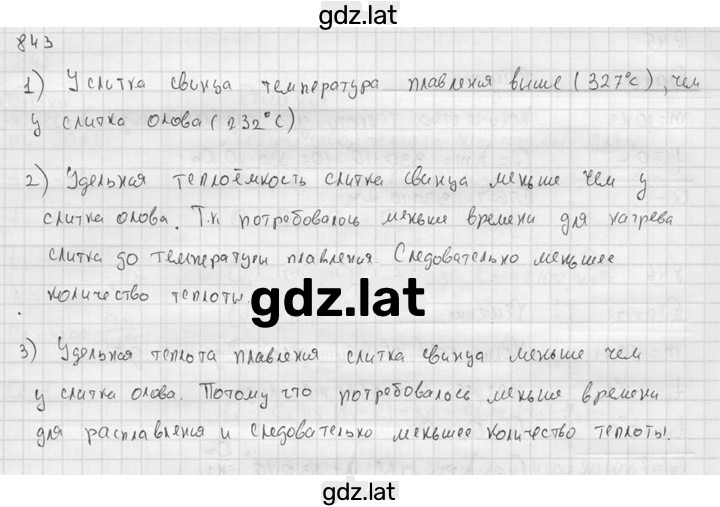 gdz.lat
843
1) У слитка свинца температура плавления выше (327°С), чем
у слитка олова (232°С)
2) Удельная теплоёмкость слитка свинца меньше чем у
слитка олова. Т.к потребовалось меньше времени для нагрева
слитка до температуры плавления. Следовательно меньшее
количество теплоты.
gdz.lat
3) Удельная теплота плавления слитка свинца меньше чем
у слитка олова. Потому что потребовалось меньше времени
для расплавления и следовательно меньшее количество теплоты.
gdz.lat